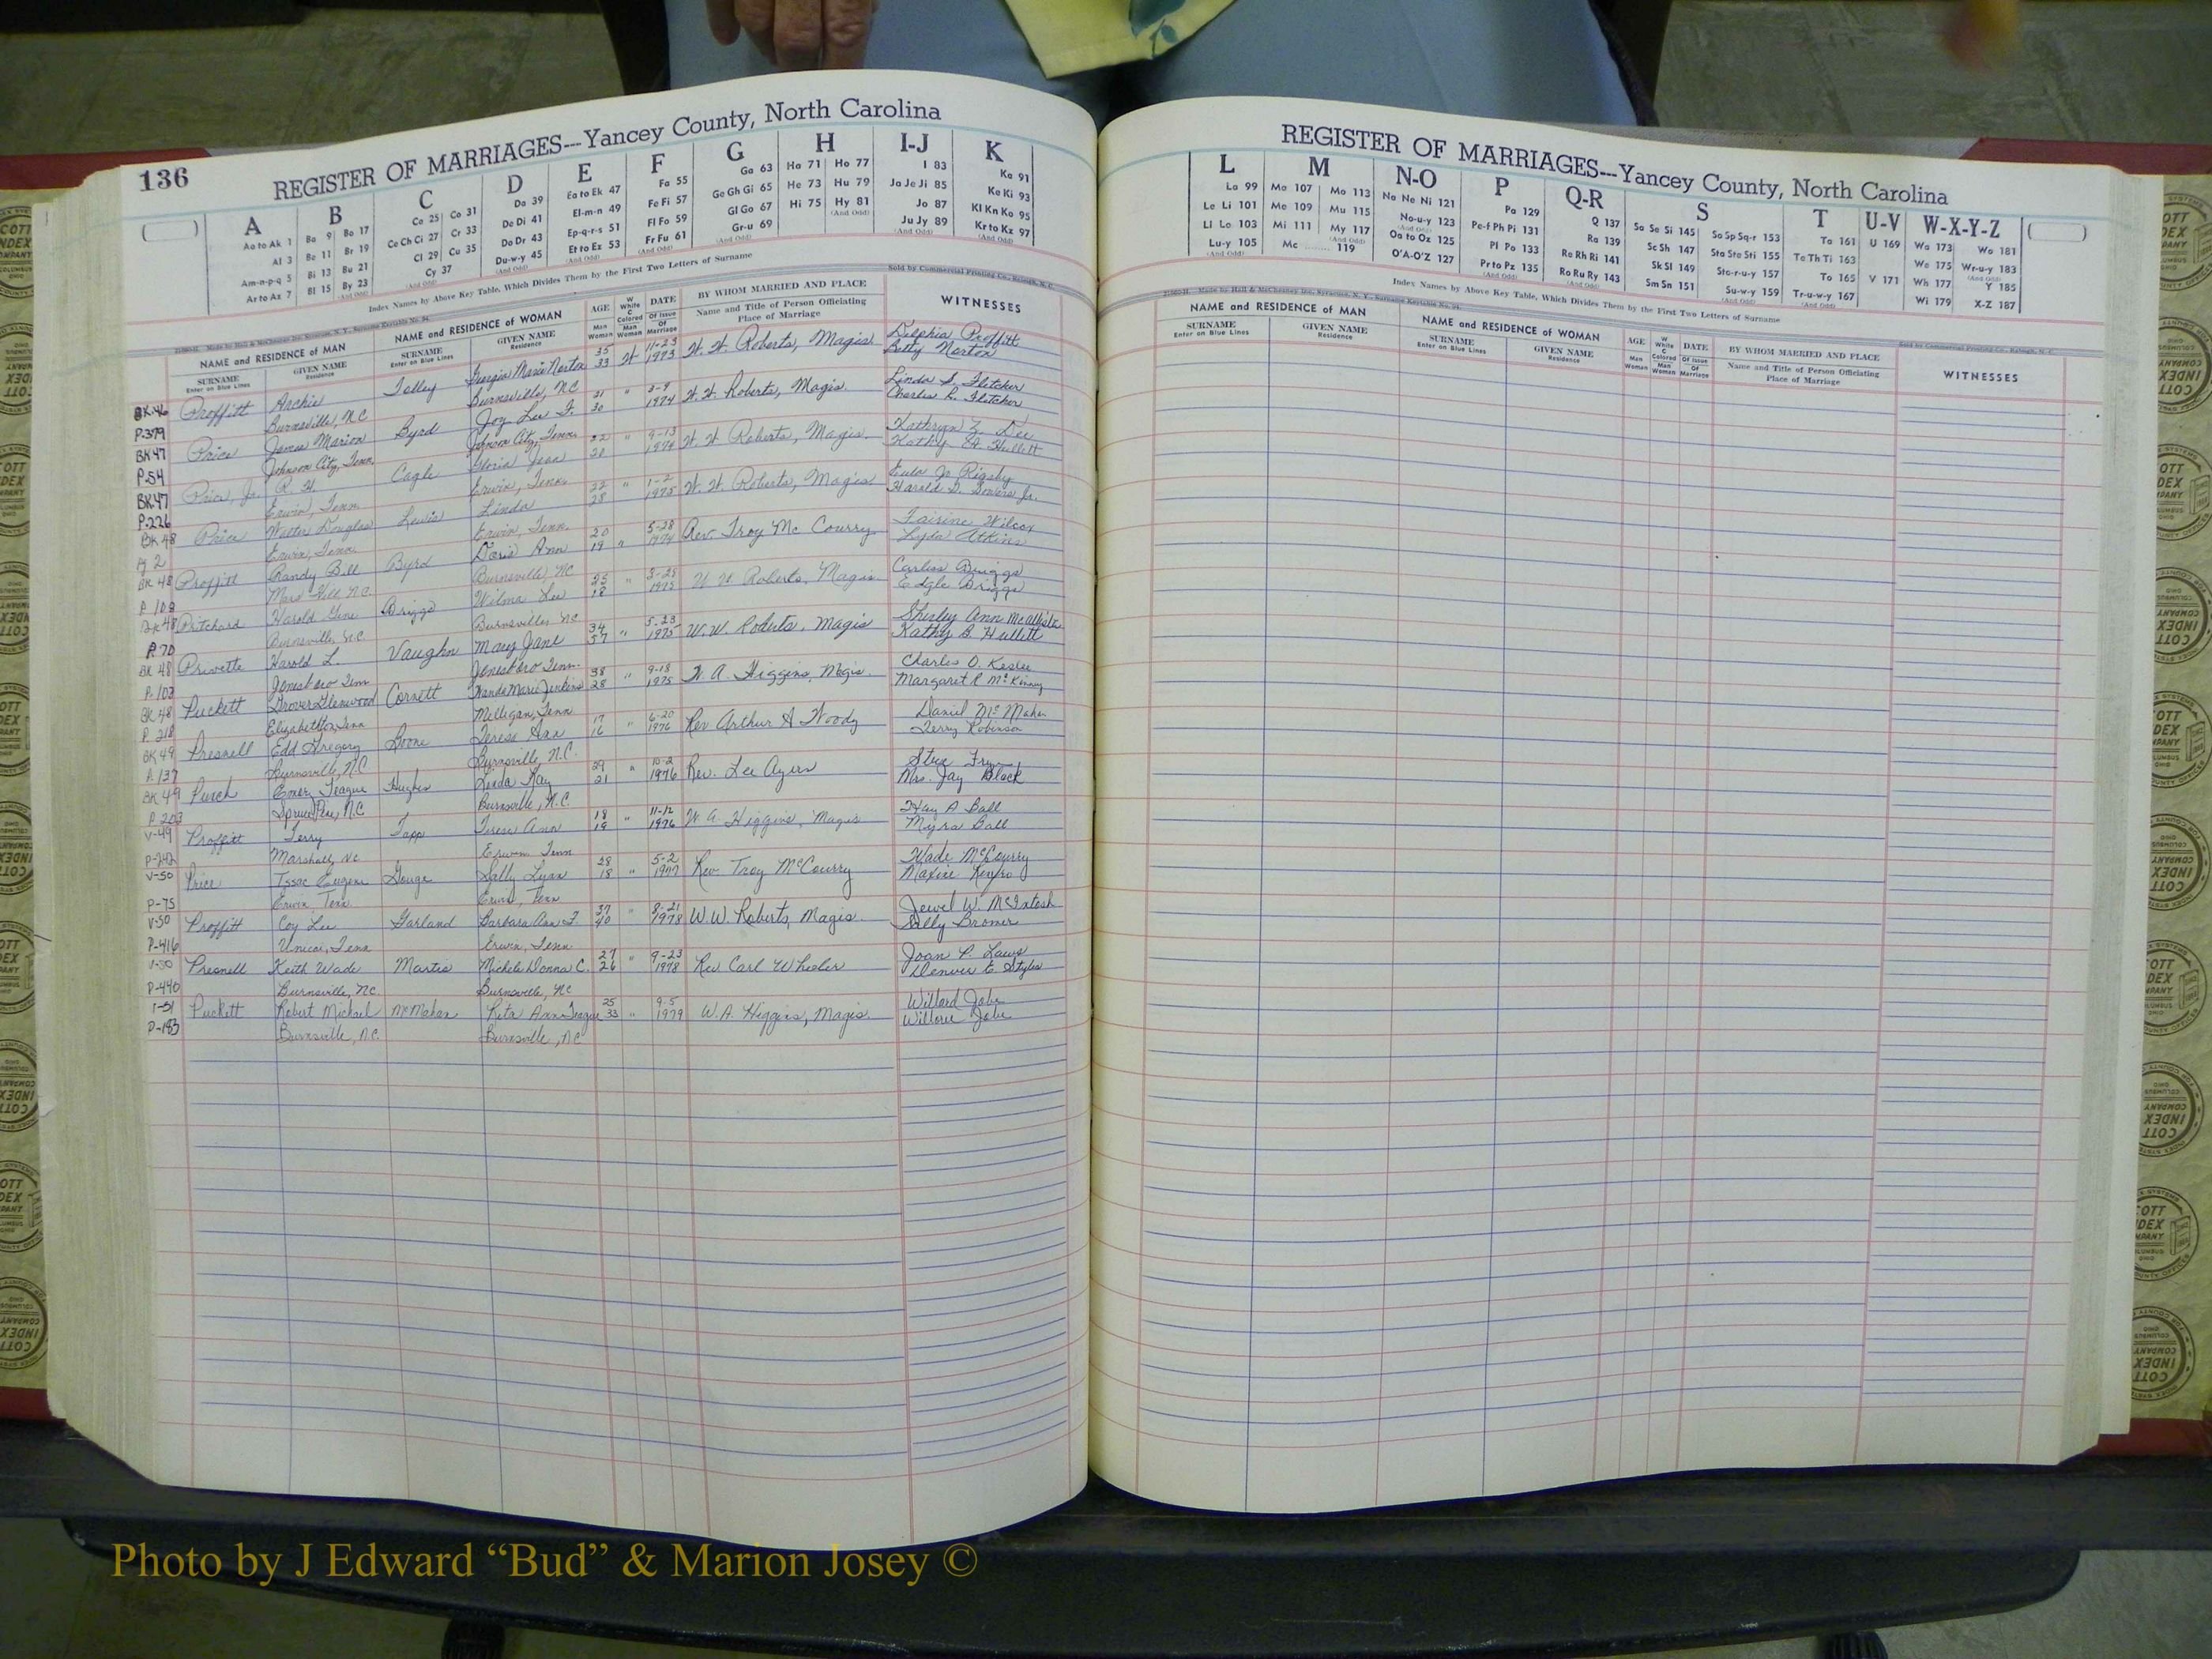 136
REGISTER OF MARRIAGES---Yancey County, North Carolina
A B C D E F G H I-J K
Aa to Ak 1
Al 3
Am-n-p-q 5
Ar to Az 7
Ba 9 Bo 17
Be 11 Br 19
Bi 13 Bu 21
Bl 15 By 23
(And Odd)
Ca 25 Co 31
Ce Ch Ci 27 Cr 33
Cl 29 Cu 35
Cy 37
(And Odd)
Da 39
De Di 41
Do Dr 43
Du-w-y 45
(And Odd)
Ea to Ek 47
El-m-n 49
Ep-q-r-s 51
Et to Ez 53
(And Odd)
Fa 55
Fe Fi 57
Fl Fo 59
Fr Fu 61
(And Odd)
Ga 63
Ge Gh Gi 65
Gl Go 67
Gr-u 69
(And Odd)
Ha 71 Ho 77
He 73 Hu 79
Hi 75 Hy 81
(And Odd)
I 83
Ja Je Ji 85
Jo 87
Ju Jy 89
(And Odd)
Ka 91
Ke Ki 93
Kl Kn Ko 95
Kr to Kz 97
(And Odd)
Index Names by Above Key Table, Which Divides Them by the First Two Letters of Surname
Sold by Commercial Printing Co., Raleigh, N. C.
NAME and RESIDENCE of MAN
SURNAME
Enter on Blue Lines
GIVEN NAME
Residence
NAME and RESIDENCE of WOMAN
SURNAME
Enter on Blue Lines
GIVEN NAME
Residence
AGE
Man
Woman
W
White
C
Colored
Man
Woman
DATE
Of Issue
Of
Marriage
BY WHOM MARRIED AND PLACE
Name and Title of Person Officiating
Place of Marriage
WITNESSES
BK.46 Proffitt Archie Tolley Georgia Marie Norton 35 33 W 11-23 1973 W. W. Roberts, Magis. Delphia Proffitt
P.379 Burnsville, N.C. Burnsville, N.C. Betty Norton
BK47 Price James Marion Byrd Joy Lee F. 21 30 " 3-9 1974 W. W. Roberts, Magis. Linda S. Fletcher
P.54 Johnson City, Tenn. Johnson City, Tenn. Charles R. Fletcher
BK.47 Price, Jr. R. H. Cagle Gloria Jean 22 20 " 9-13 1974 W. W. Roberts, Magis. Kathryn Z. Dee
P.226 Erwin, Tenn. Erwin, Tenn. Kathy B. Hullett
BK 48 Price Walter Douglas Lewis Linda 22 28 " 1-2 1975 W. W. Roberts, Magis. Eula Jo Rigsby
Pg 2 Erwin, Tenn. Erwin, Tenn. Harold D. Bowers Jr.
BK 48 Proffitt Randy Bill Byrd Doris Ann 20 19 " 5-28 Rev. Troy McCourry Fairine Wilcox
P 109 Mars Hill N.C. Burnsville, NC Lyda Atkins
BK 48 Pritchard Harold Gene Briggs Wilma Lee 25 18 " 3-28 1975 W. W. Roberts, Magis. Carliss Briggs
P. 70 Burnsville, N.C. Burnsville NC Edgle Briggs
BK 48 Privette Harold L. Vaughn Mary Jane 34 37 " 5-23 1975 W. W. Roberts, Magis Shirley Ann McAllister
P. 102 Jonesboro Tenn Jonesboro Tenn. Kathy B. Hullett
BK 48 Puckett Grover Glenwood Cornett Wanda Marie Jenkins 38 28 " 9-18 1975 W. A. Higgins, Magis. Charles O. Keslee
P 218 Elizabethton, Tenn Milligan, Tenn Margaret R McKinney
BK 49 Presnell Edd Gregory Boone Teresa Ann 17 16 " 6-20 1976 Rev Arthur A Woody Daniel McMahan
P. 137 Burnsville, N.C Burnsville, N.C. Terry Robinson
BK 49 Purch Emery Teague Hughes Linda Kay 29 21 " 10-2 1976 Rev. Lee Ayers
P. 203 Spruce Pine, N.C Burnsville, N.C. Mrs. Jay Black
V-49 Proffitt Terry Tapp Teresa Ann 18 19 " 11-12 1976 W A. Higgins, Magis Kay A Ball
P-242 Marshall, NC Erwin Tenn Myra Ball
V-50 Price Issac Eugene Gouge Sally Lynn 28 18 " 5-2 1977 Rev Troy McCourry Wade McCourry
P-75 Erwin Tenn Erwin, Tenn Maxine Renfro
V-50 Proffitt Coy Lee Garland Barbara Ann F. 37 40 " 8-21 1978 W. W. Roberts, Magis. Jewel W. McIntosh
P-416 Unicoi, Tenn Erwin, Tenn Sally Bromer
V-50 Presnell Keith Wade Martin Michele Donna C. 27 26 " 9-23 1978 Rev Carl Wheeler Joan P. Laws
P-440 Burnsville, NC. Burnsville, NC Denver E. Styles
V-51 Puckett Robert Michael McMahan Rita Ann Teague 25 33 " 9-5 1979 W. A. Higgins, Magis. Willard Jobe
P-183 Burnsville, N.C. Burnsville, N.C
REGISTER OF MARRIAGES---Yancey County, North Carolina
L M N-O P Q-R S T U-V W-X-Y-Z
La 99
Le Li 101
Ll Lo 103
Lu-y 105
(And Odd)
Ma 107 Mo 113
Me 109 Mu 115
Mi 111 My 117
(And Odd)
Mc 119
Na Ne Ni 121
No-u-y 123
(And Odd)
Oa to Oz 125
O'A-O'Z 127
Pa 129
Pe-f Ph Pi 131
Pl Po 133
Pr to Pz 135
(And Odd)
Q 137
Ra 139
Re Rh Ri 141
Ro Ru Ry 143
(And Odd)
Sa Se Si 145 So Sp Sq-r 153
Sc Sh 147 Sta Ste Sti 155
Sk Sl 149 Sto-r-u-y 157
Sm Sn 151 Su-w-y 159
(And Odd)
Ta 161
Te Th Ti 163
To 165
Tr-u-w-y 167
(And Odd)
U 169
V 171
Wa 173 Wo 181
We 175 Wr-u-y 183
(And Odd)
Wh 177 Y 185
Wi 179 X-Z 187
Index Names by Above Key Table, Which Divides Them by the First Two Letters of Surname
NAME and RESIDENCE of MAN
SURNAME
Enter on Blue Lines
GIVEN NAME
Residence
NAME and RESIDENCE of WOMAN
SURNAME
Enter on Blue Lines
GIVEN NAME
Residence
AGE
Man
Woman
W
White
C
Colored
Man
Woman
DATE
Of Issue
Of
Marriage
BY WHOM MARRIED AND PLACE
Name and Title of Person Officiating
Place of Marriage
WITNESSES
Photo by J Edward “Bud” & Marion Josey ©